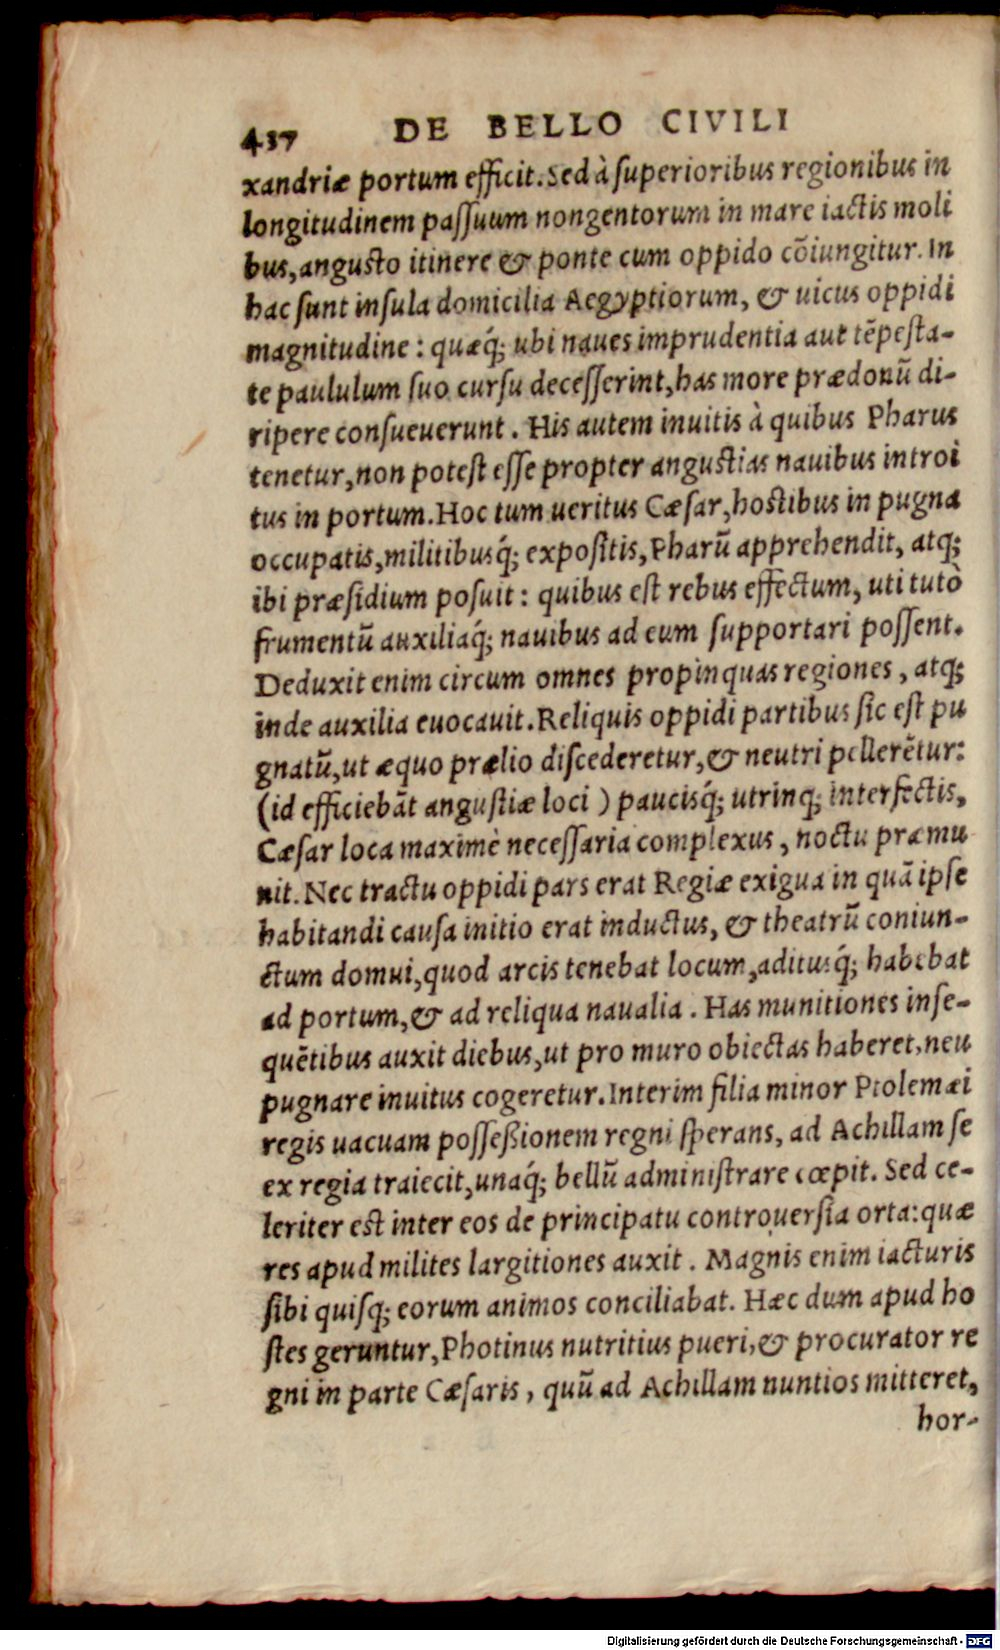 437 DE BELLO CIVILI
xandriæ portum efficit. Sed à superioribus regionibus in
longitudinem passuum nongentorum in mare iactis moli
bus, angusto itinere & ponte cum oppido cōiungitur. In
hac sunt insula domicilia Aegyptiorum, & uicus oppidi
magnitudine: quæq́; ubi naues imprudentia aut tēpesta-
te paululum suo cursu decesserint, has more prædonū di-
ripere consueuerunt. His autem inuitis à quibus Pharus
tenetur, non potest esse propter angustias nauibus introi
tus in portum. Hoc tum ueritus Cæsar, hostibus in pugna
occupatis, militibusq́; expositis, Pharū apprehendit, atq;
ibi præsidium posuit: quibus est rebus effectum, uti tutò
frumentū auxiliaq́; nauibus ad eum supportari possent.
Deduxit enim circum omnes propinquas regiones, atq;
inde auxilia euocauit. Reliquis oppidi partibus sic est pu
gnatū, ut æquo prælio discederetur, & neutri pellerētur:
(id efficiebāt angustiæ loci) paucisq́; utrinq; interfectis,
Cæsar loca maximè necessaria complexus, noctu præmu
nit. Nec tractu oppidi pars erat Regiæ exigua in quā ipse
habitandi causa initio erat inductus, & theatrū coniun-
ctum domui, quod arcis tenebat locum, aditusq́; habebat
ad portum, & ad reliqua naualia. Has munitiones inse-
quētibus auxit diebus, ut pro muro obiectas haberet, neu
pugnare inuitus cogeretur. Interim filia minor Ptolemæi
regis uacuam posseßionem regni sperans, ad Achillam se
ex regia traiecit, unaq́; bellū administrare cœpit. Sed ce-
leriter est inter eos de principatu controuersia orta: quæ
res apud milites largitiones auxit. Magnis enim iacturis
sibi quisq; eorum animos conciliabat. Hæc dum apud ho
stes geruntur, Photinus nutritius pueri, & procurator re
gni in parte Cæsaris, quū ad Achillam nuntios mitteret,
hor-
Digitalisierung gefördert durch die Deutsche Forschungsgemeinschaft - DFG